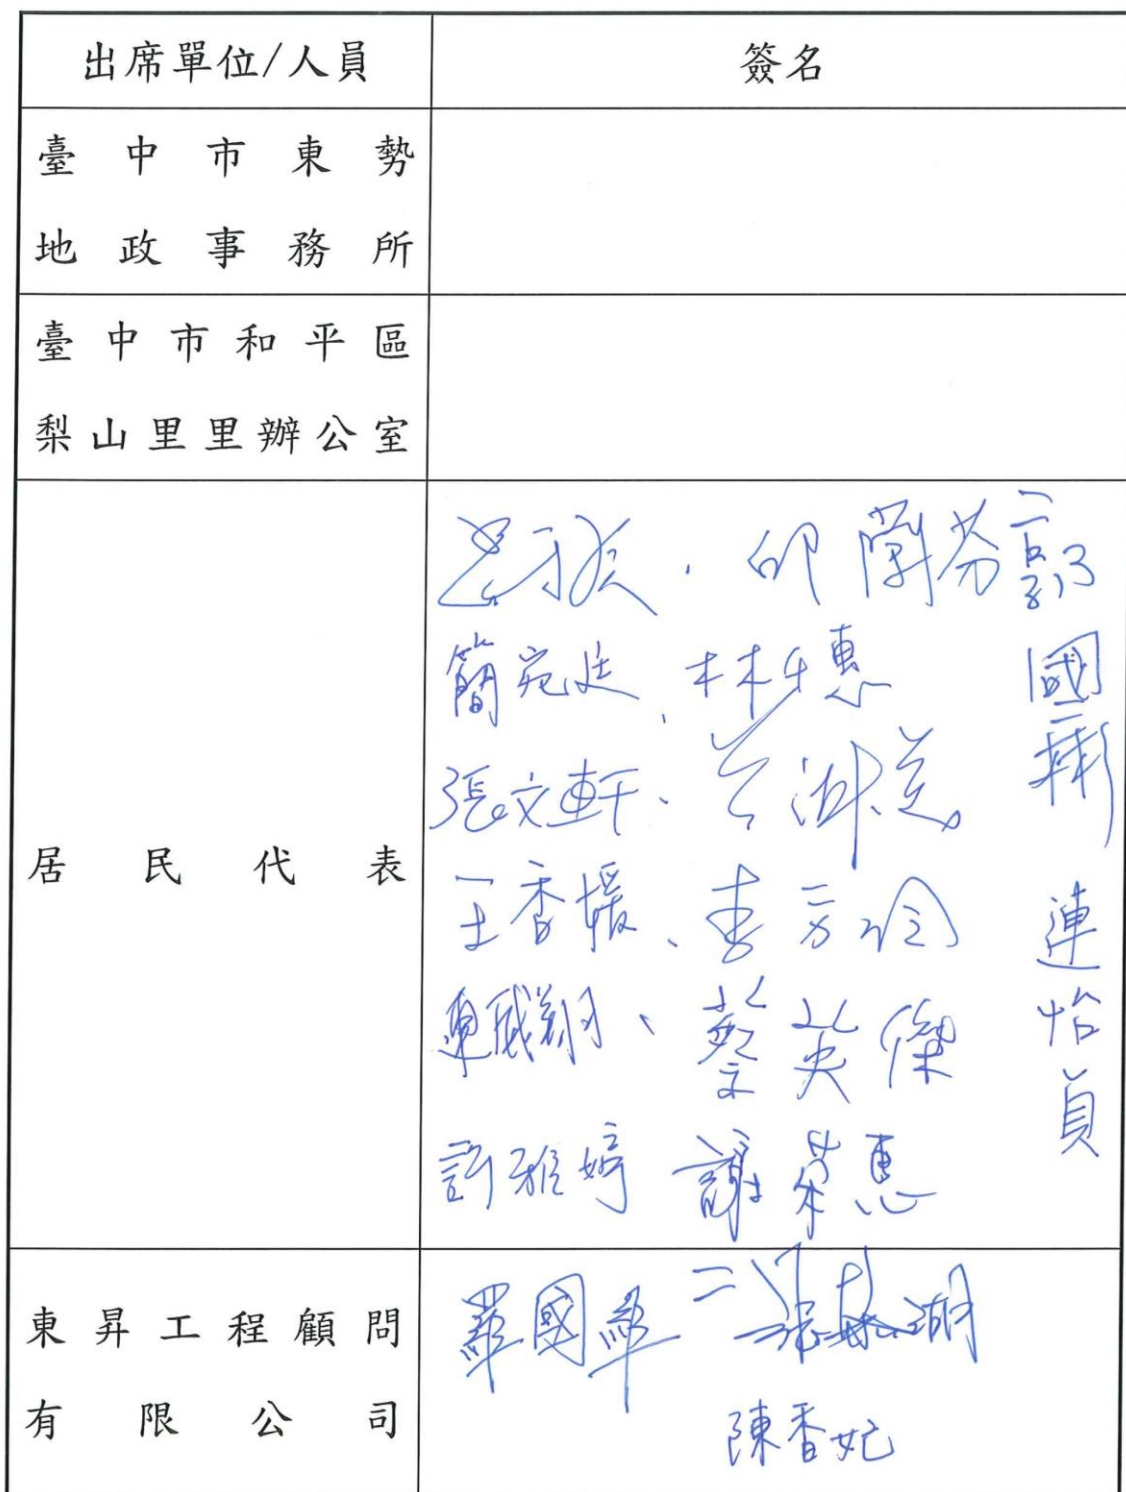 出席單位/人員
簽名
臺中市東勢
地政事務所
臺中市和平區
梨山里里辦公室
居民代表
邱蘭芬
簡宛廷、林千惠
張文軒、
王香媛、李芳伶
連威翔、蔡英傑
許雅婷 謝榮惠
國彬
連怡貞
東昇工程顧問
有限公司
羅國華
陳香妃